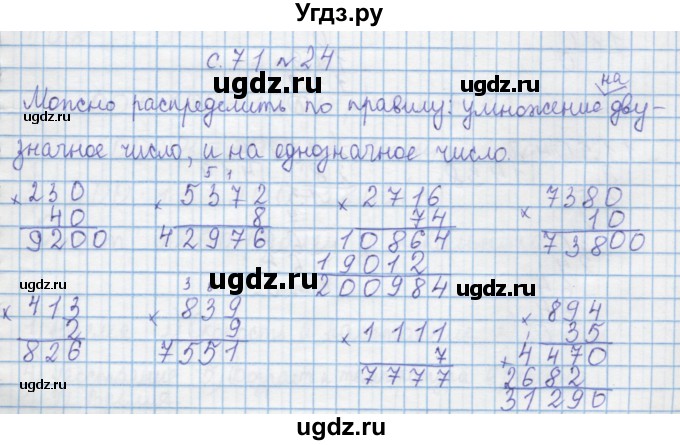 Угдз.ру
с. 71 № 24
ugdz.ru
ugdz.ru
на
Можно распределить по правилу: умножение дву-
значное число, и на однозначное число.
ugdz.ru
5 1
× 230
40
9200
× 5372
8
42976
× 2716
74
10864
19012
200984
× 7380
10
73800
ugdz.ru
ugdz.ru
ugdz.ru
× 413
2
826
3
× 839
9
7551
× 1111
7
7777
× 894
35
× 4470
2682
31290
ugdz.ru
ugdz.ru
ugdz.ru
Угдз.ру